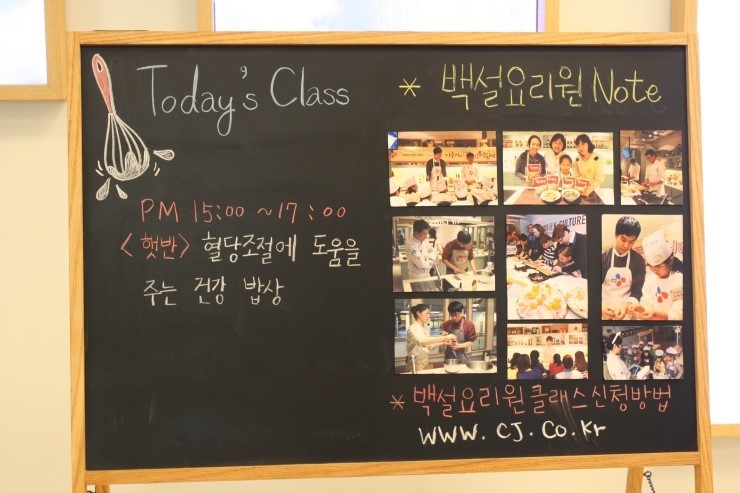 Today's Class
PM 15:00 ~ 17:00
<햇반> 혈당조절에 도움을
주는 건강 밥상
* 백설요리원 Note
CULTURE
* 백설요리원 클래스신청방법
www.cj.co.kr